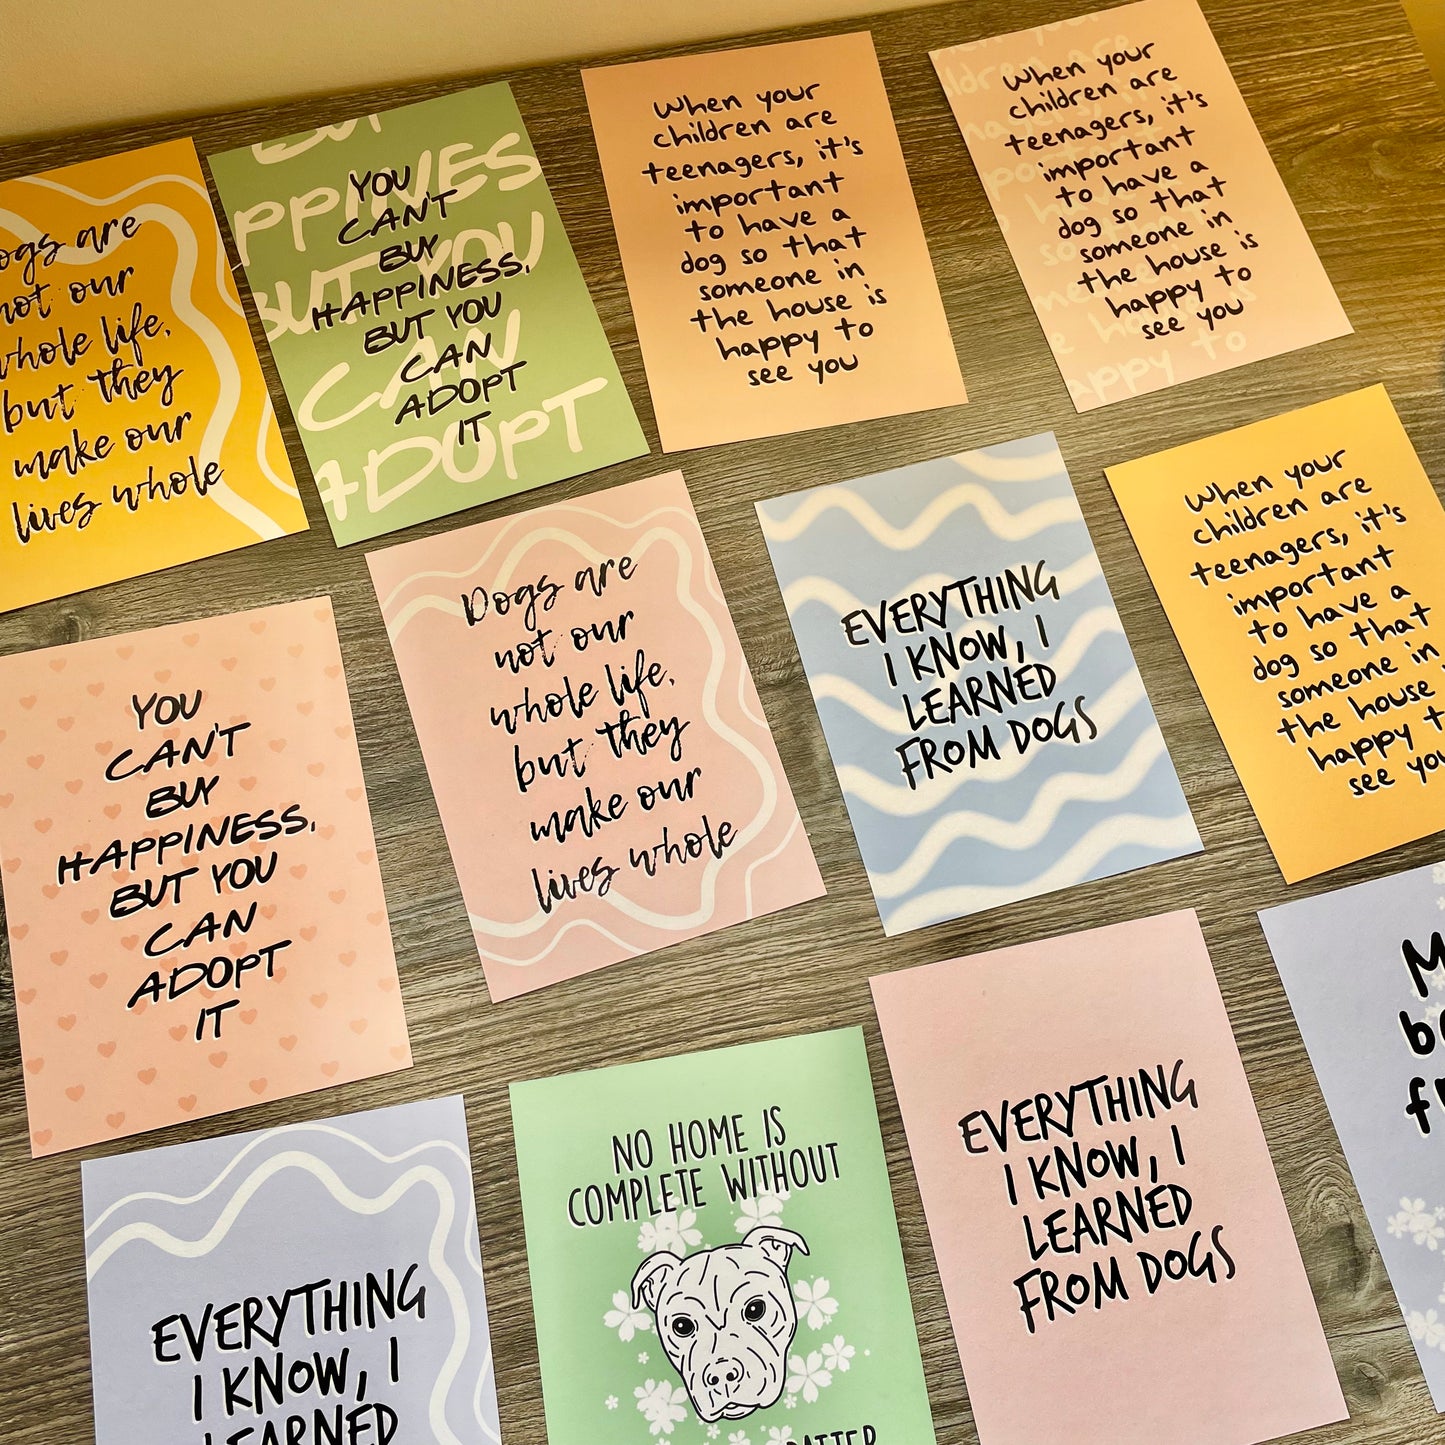 Dogs are
not our
whole life,
but they
make our
lives whole
YOU
CAN'T
BUY
HAPPINESS,
BUT YOU
CAN
ADOPT
IT
BUT
HAPPINESS
BUT YOU
CAN
ADOPT
When your
children are
teenagers, it's
important
to have a
dog so that
someone in
the house is
happy to
see you
When your
children are
teenagers, it's
important
to have a
dog so that
someone in
the house is
happy to
see you
YOU
CAN'T
BUY
HAPPINESS,
BUT YOU
CAN
ADOPT
IT
Dogs are
not our
whole life,
but they
make our
lives whole
EVERYTHING
I KNOW, I
LEARNED
FROM DOGS
When your
children are
teenagers, it's
important
to have a
dog so that
someone in
the house
happy to
see you
EVERYTHING
I KNOW, I
LEARNED
NO HOME IS
COMPLETE WITHOUT
EVERYTHING
I KNOW, I
LEARNED
FROM DOGS